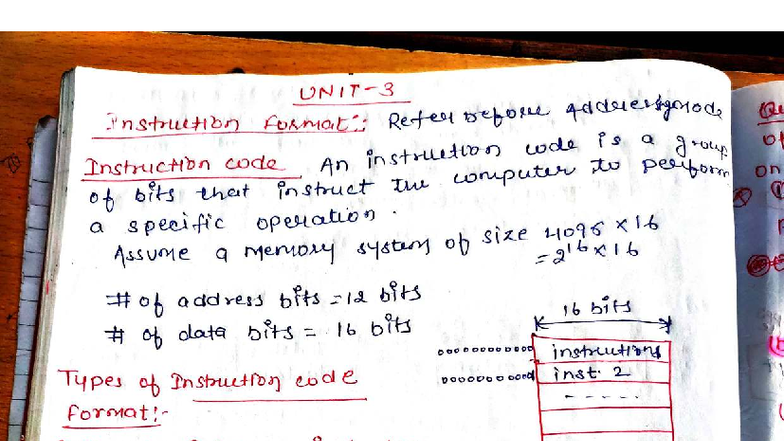 UNIT-3
Instruction Format:: Refer before addressing mode
Instruction code An instruction code is a group
of bits that instruct the computer to perform
a specific operation.
Assume a memory system of size 4096 × 16
= 2^16 × 16
# of address bits = 12 bits
# of data bits = 16 bits
16 bits
000000000000 instruction1
000000000001 inst. 2
-----
Types of Instruction code
Format:-